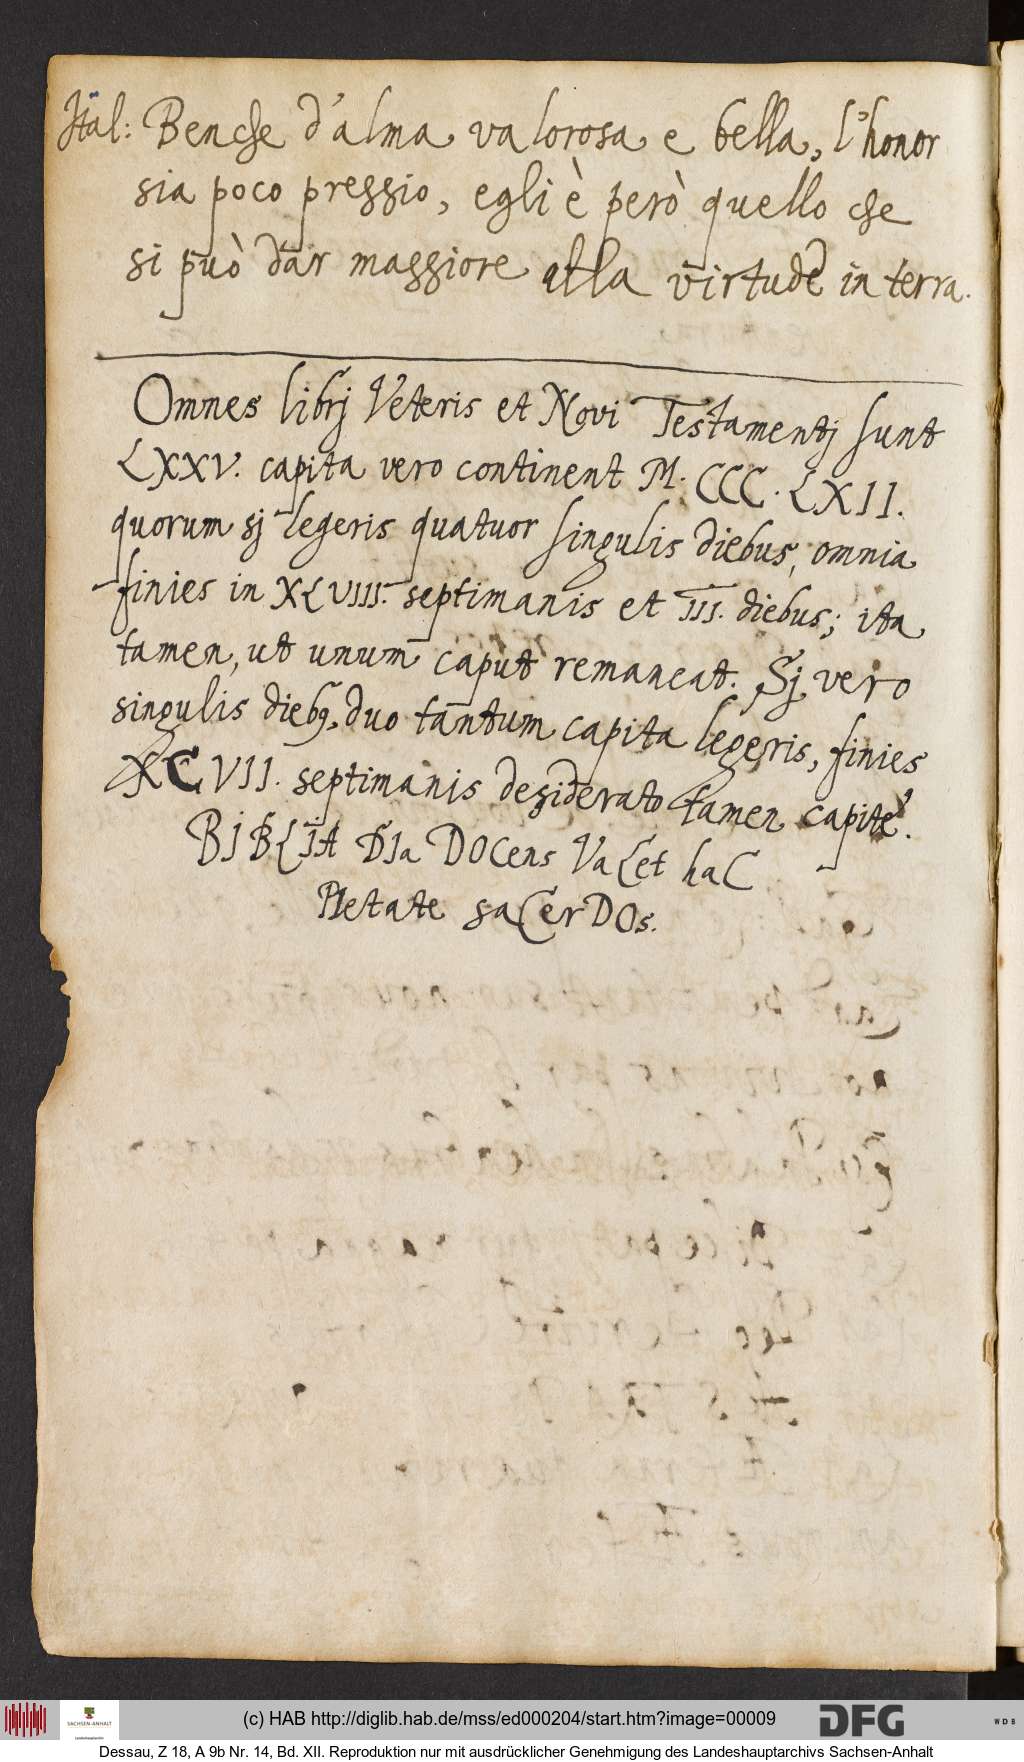 Ital: Benche d'alma valorosa e bella, l'honor
sia poco preggio, egli è però quello che
si può dar maggiore alla virtude in terra.
Omnes librj Veteris et Novi Testamentj sunt
LXXV. capita vero continent M. CCC. LXII.
quorum sj legeris quatuor singulis diebus, omnia
finies in XLVIII. septimanis et III. diebus; ita
tamen, ut unum caput remaneat. Sj vero
singulis dieb9, duo tantum capita legeris, finies
XCVII. septimanis desiderato tamen capite.
BIBLIA DIa DOCens VaLet haC
PIetate saCerDOs.
(c) HAB http://diglib.hab.de/mss/ed000204/start.htm?image=00009
SACHSEN-ANHALT
DFG
WDB
Dessau, Z 18, A 9b Nr. 14, Bd. XII. Reproduktion nur mit ausdrücklicher Genehmigung des Landeshauptarchivs Sachsen-Anhalt